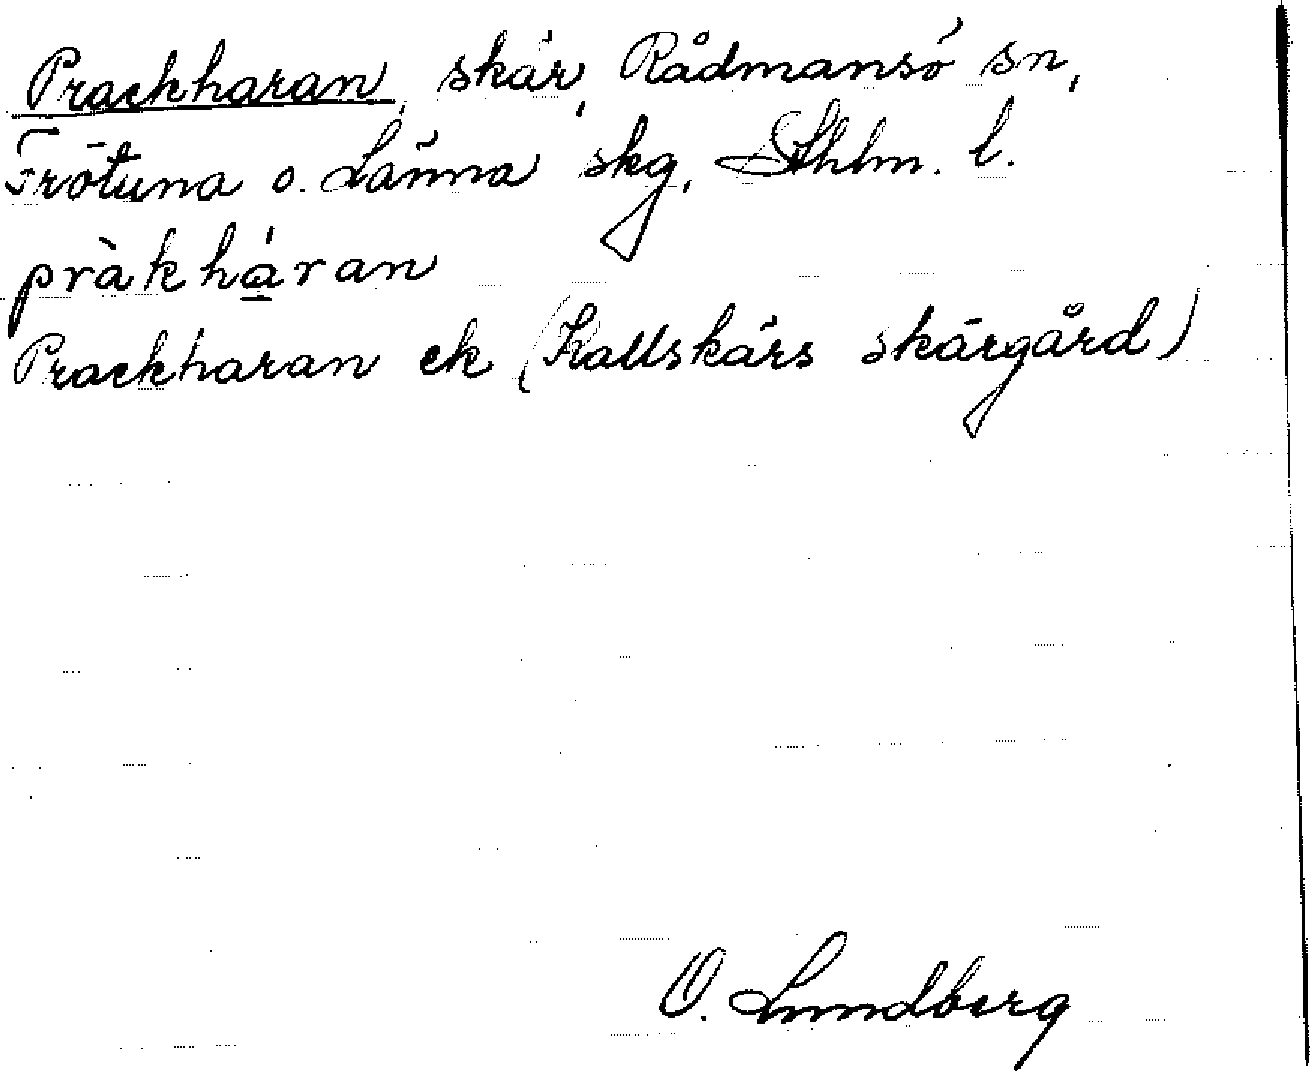 Prackharan, skär, Rådmansö sn,
Frötuna o. Länna skg, Sthlm. l.
pràkháran
Prackharan ek (Kallskärs skärgård)
O. Lundberg